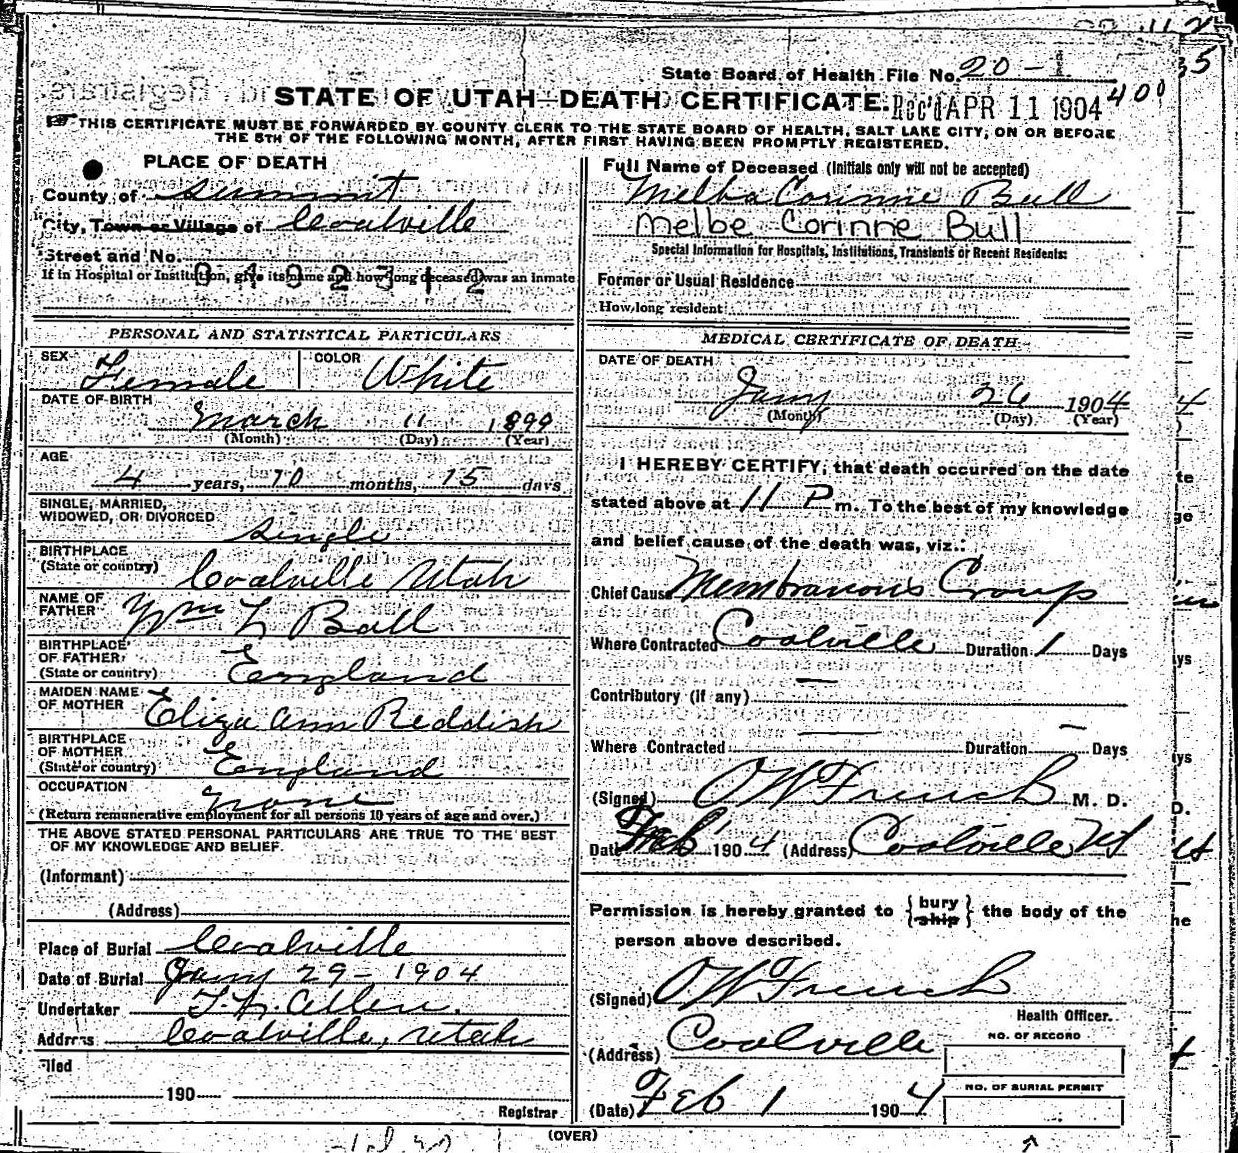 State Board of Health File No. 20-1
400
STATE OF UTAH—DEATH CERTIFICATE. Rec'd APR 11 1904
THIS CERTIFICATE MUST BE FORWARDED BY COUNTY CLERK TO THE STATE BOARD OF HEALTH, SALT LAKE CITY, ON OR BEFORE
THE 8TH OF THE FOLLOWING MONTH, AFTER FIRST HAVING BEEN PROMPTLY REGISTERED.
PLACE OF DEATH
County of Summit
City, Town or Village of Coalville
Street and No.
If in Hospital or Institution, give its name and how long deceased was an inmate
0 4 9 2 3 1 2
Full Name of Deceased (Initials only will not be accepted)
Melba Corinne Bull
Melbe Corinne Bull
Special Information for Hospitals, Institutions, Transients or Recent Residents:
Former or Usual Residence
How long resident
PERSONAL AND STATISTICAL PARTICULARS
SEX Female COLOR White
DATE OF BIRTH
March 11 1899
(Month) (Day) (Year)
AGE
4 years, 10 months, 15 days
SINGLE, MARRIED,
WIDOWED, OR DIVORCED
single
BIRTHPLACE
(State or country) Coalville Utah
NAME OF
FATHER Wm L Ball
BIRTHPLACE
OF FATHER
(State or country) England
MAIDEN NAME
OF MOTHER Eliza Ann Reddish
BIRTHPLACE
OF MOTHER
(State or country) England
OCCUPATION none
(Return remunerative employment for all persons 10 years of age and over.)
THE ABOVE STATED PERSONAL PARTICULARS ARE TRUE TO THE BEST
OF MY KNOWLEDGE AND BELIEF.
(Informant)
(Address)
Place of Burial Coalville
Date of Burial Jany 29 - 1904
Undertaker T. L. Allen.
Address Coalville, Utah
Filed
190
Registrar
MEDICAL CERTIFICATE OF DEATH
DATE OF DEATH
Jany 26 1904
(Month) (Day) (Year)
I HEREBY CERTIFY, that death occurred on the date
stated above at 11 P m. To the best of my knowledge
and belief cause of the death was, viz.:
Chief Cause Membranous Croup
Where Contracted Coalville Duration 1 Days
Contributory (if any) —
Where Contracted — Duration — Days
(Signed) O W French M. D.
Date Feb 1 1904 (Address) Coalville Ut
Permission is hereby granted to {bury ship} the body of the
person above described.
(Signed) O. W French
Health Officer.
(Address) Coalville
NO. OF RECORD
NO. OF BURIAL PERMIT
(Date) Feb 1 1904
(OVER)